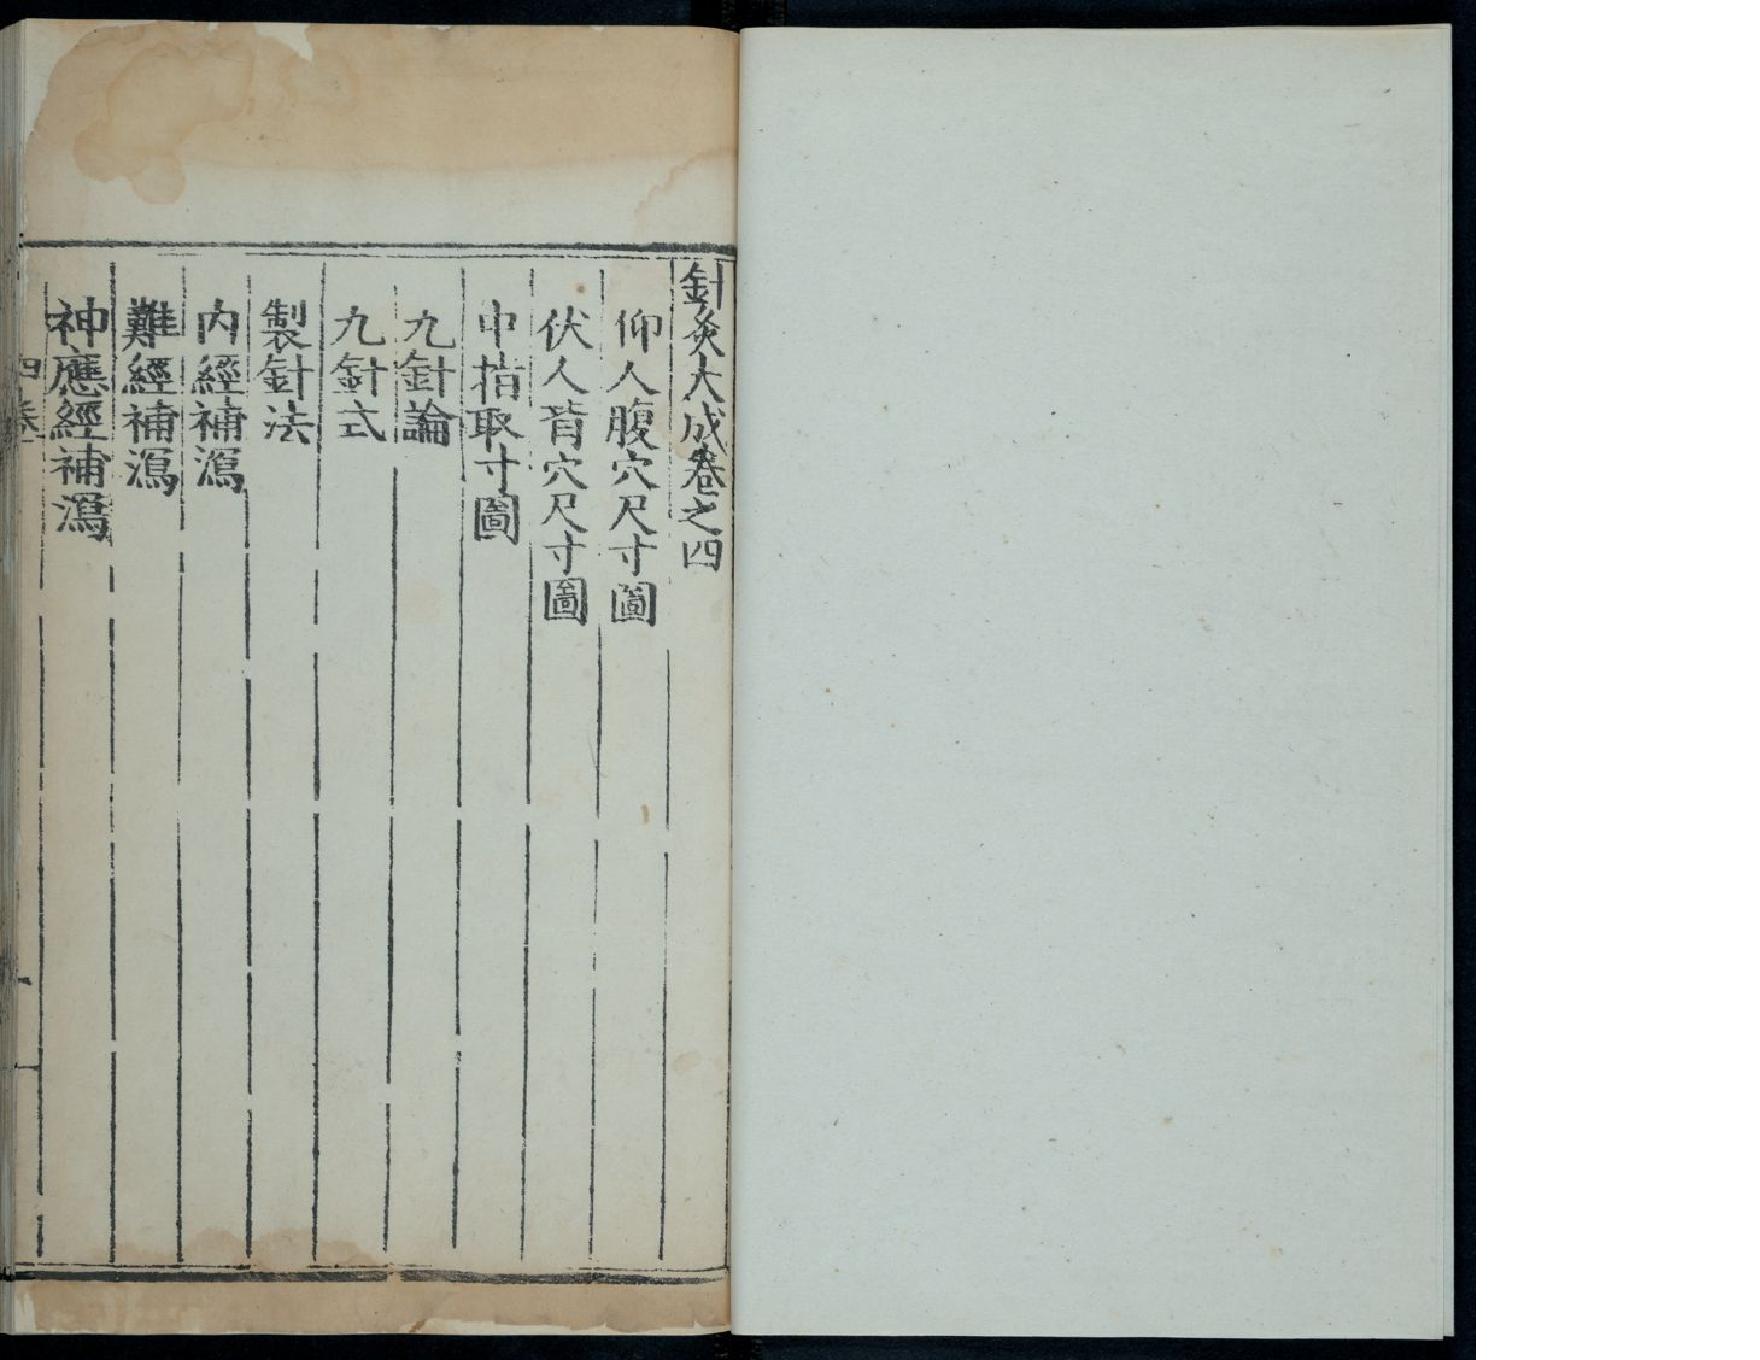 針灸大成卷之四
仰人腹穴尺寸圖
伏人背穴尺寸圖
中指取寸圖
九針論
九針式
製針法
内經補瀉
難經補瀉
神應經補瀉
四卷